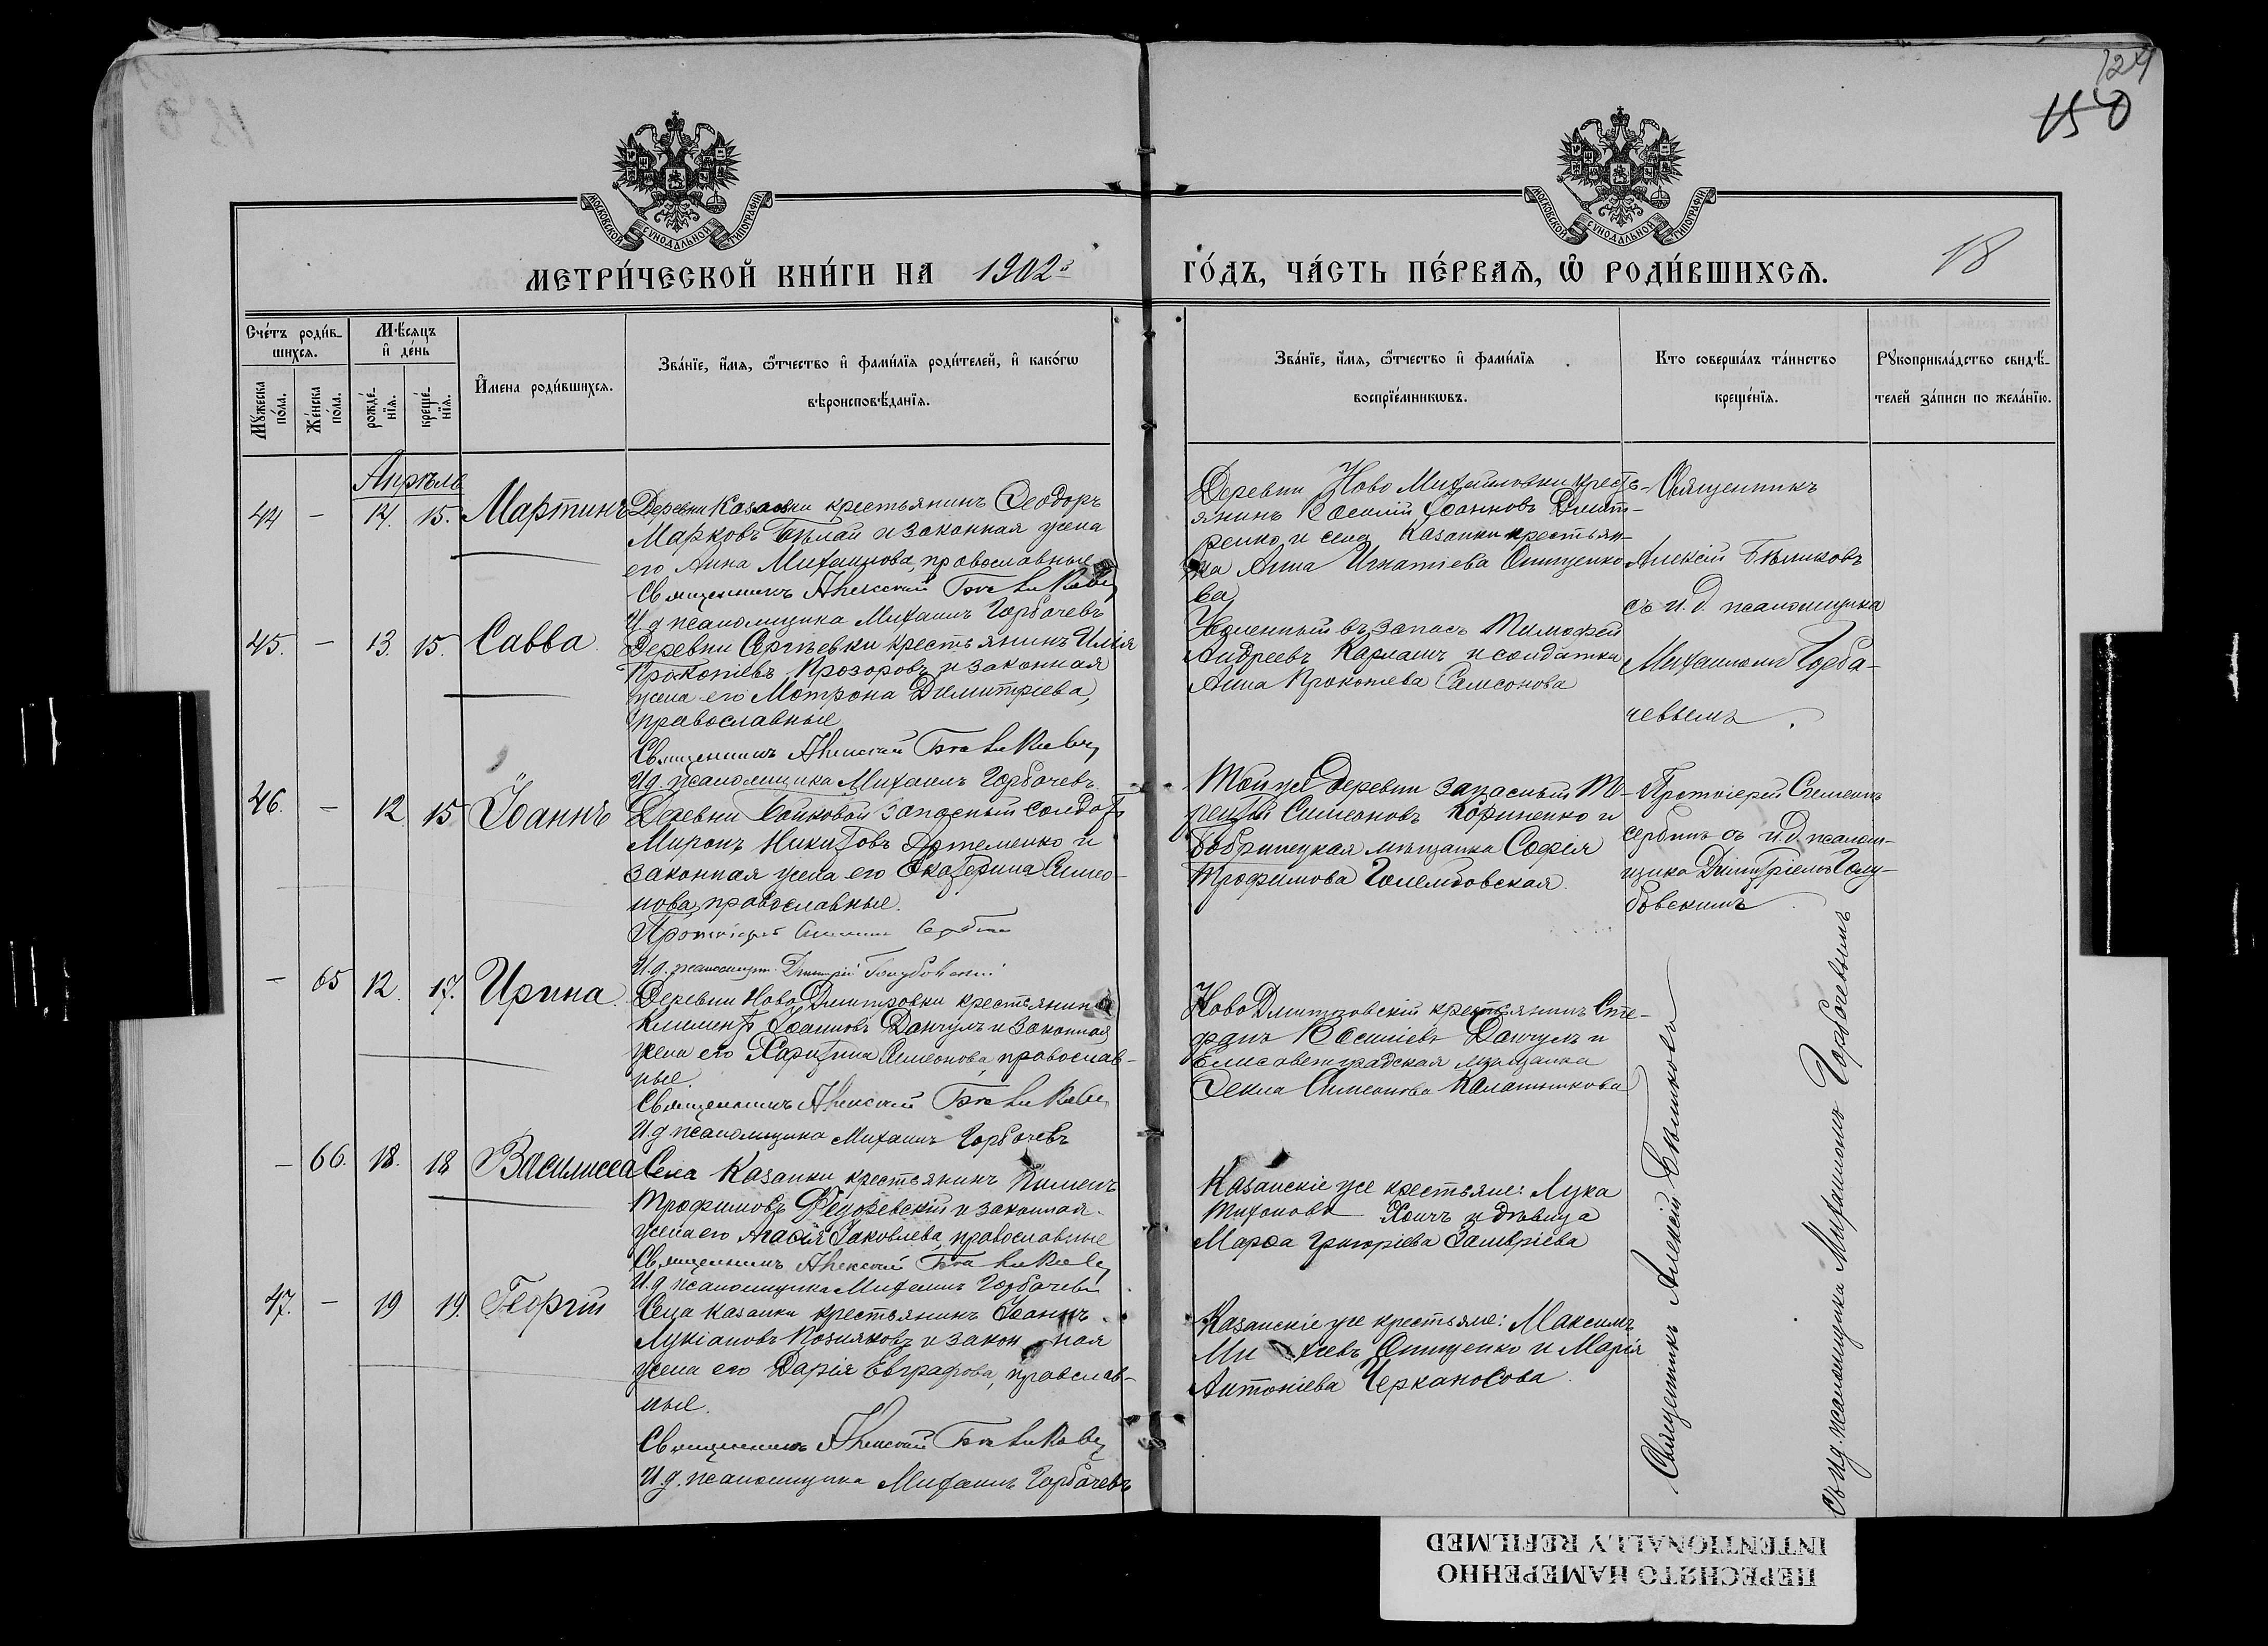 124
150
МОСКОВСКОЙ СУНОДАЛЬНОЙ ТИПОГРАФІИ
МОСКОВСКОЙ СУНОДАЛЬНОЙ ТИПОГРАФІИ
МЕТРИ́ЧЕСКОЙ КНИ́ГИ НА 1902й
ГО́ДЪ, ЧА́СТЬ ПЕ́РВАѦ, Ѡ РОДИ́ВШИХСѦ.
18
Сче́тъ роди́в-
шихсѧ.
Мꙋ́жеска по́ла.
Же́нска по́ла.
Мѣ́сѧцъ
и҆ де́нь
рожде́-
нїѧ.
креще́-
нїѧ.
И҆мена роди́вшихсѧ.
Зва́нїе, и҆́мѧ, ѻ҆́тчество и҆ фами́лїѧ роди́телей, и҆ како́гѡ
вѣроисповѣ́данїѧ.
Зва́нїе, и҆́мѧ, ѻ҆́тчество и҆ фами́лїѧ
воспрїе́мникѡвъ.
Кто соверша́лъ та́инство
креще́нїѧ.
Рꙋкоприкла́дство свидѣ́-
телей за́писи по жела́нїю.
Апрѣль
44 – 14. 15. Мартинъ
Деревни Казанки крестьянинъ Ѳеодоръ
Марковъ Бѣлай и законная жена
его Анна Михаилова, православные
Священникъ Алексѣй Бѣликовъ
И.д псаломщика Михаилъ Горбачевъ
Деревни Ново Михайловки крестъ-
янинъ Василій Іоанновъ Дмит-
ренко и села Казанки крестьян-
ка Анна Игнатіева Онищенко
ва
Священникъ
Алексій Бѣликовъ
съ и.д. псаломщика
Михаиломъ Горба-
чевымъ.
45. – 13. 15. Савва
Деревни Сергѣевки крестьянинъ Илія
Прокопіевъ Прозоровъ и законная
жена его Мотрона Димитріева,
православные
Священникъ Алексѣй Бѣликовъ
И.д. псаломщика Михаилъ Горбачевъ
Уволенный въ запасъ Тимофей
Андреевъ Карлашъ и солдатка
Анна Прокопіева Самсонова
46. – 12 15 Іоаннъ
Деревни запасный солдатъ
Миронъ Никитовъ Артеменко и
законная жена его Екатерина Симео-
нова, православные.
Протоіерей Симеонъ Сербинъ
И.д. псаломщ. Димитрій Голубовскій
Той же деревни запасный Те-
рентій Симеоновъ Корниенко и
Бобринецкая мѣщанка Софія
Трофимова Голембовская.
Протоіерей Симеонъ
Сербинъ съ и.д. псалом-
щика Димитріемъ Голу-
бовскимъ.
– 65 12. 17. Ирина
Деревни Ново Дмитровки крестьянинъ
Климентъ Іоанновъ Данчулъ и законная
жена его Харитина Симеонова, православ-
ные.
Священникъ Алексѣй Бѣликовъ
И.д псаломщика Михаилъ Горбачевъ
Ново Дмитровскій крестьянинъ Сте-
фанъ Василіевъ Данчулъ и
Елисаветградская мѣщанка
Ѳекла Симеонова Калашникова
– 66. 18. 18 Василисса
Села Казанки крестьянинъ Пименъ
Трофимовъ и законная
жена его Агафія Іаковлева, православные
Священникъ Алексѣй Бѣликовъ
И.д псаломщика Михаилъ Горбачевъ
Казанскіе же крестьяне: Лука
Тихоновъ и дѣвица
Марѳа Григоріева
47. – 19 19. Георгій
Села Казанки крестьянинъ Іоаннъ
Лукіановъ Позняковъ и закон ная
жена его Дарія Евграфова, православ-
ные.
Священникъ Алексѣй Бѣликовъ
И.д. псаломщика Михаилъ Горбачевъ
Казанскіе же крестьяне: Максимъ
Ми хеевъ Онищенко и Марія
Антоніева Черканосова
Священникъ Алексій Бѣликовъ
съ и.д. псаломщика Михаиломъ Горбачевымъ
ПЕРЕСНЯТО НАМЕРЕННО
INTENTIONALLY REFILMED